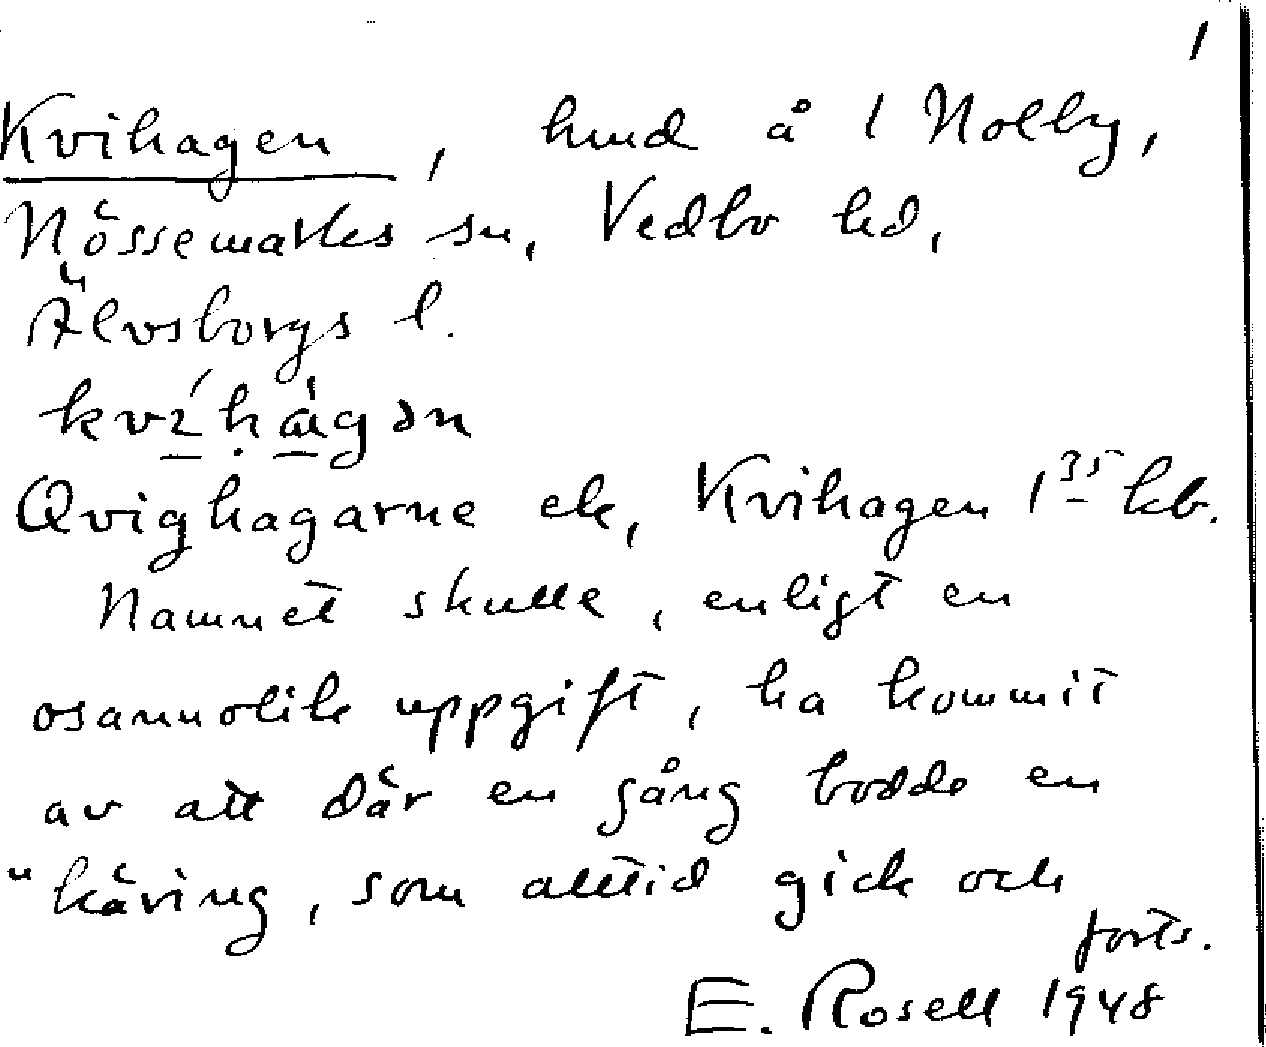 1
Kvihagen, hmd å 1 Nolby,
Nössemarks sn, Vedbo hd,
Älvsborgs l.
Qvighagarne ek, Kvihagen 1 35 kb.
Namnet skulle, enligt en
osannolik uppgift, ha kommit
av att där en gång bodde en
"käring, som alltid gick och
forts.
E. Rosell 1948